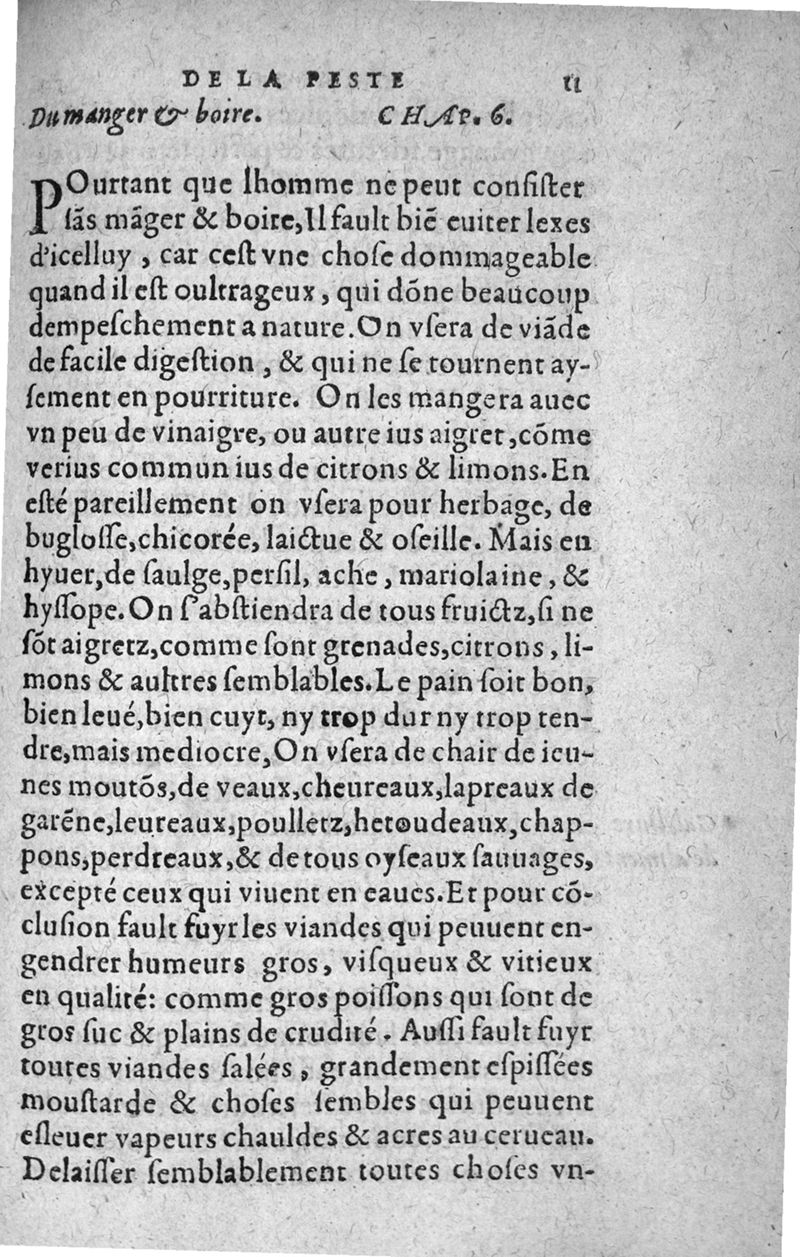 DE LA PESTE 11
Du manger & boire. CHAP. 6.
POurtant que lhomme ne peut consister
sãs mãger & boire, Il fault biē euiter lexes
d'icelluy, car cest vne chose dommageable
quand il est oultrageux, qui dõne beaucoup
dempeschement a nature. On vsera de viãde
de facile digestion, & qui ne se tournent ay-
sement en pourriture. On les mangera auec
vn peu de vinaigre, ou autre ius aigret, cõme
verius commun ius de citrons & limons. En
esté pareillement on vsera pour herbage, de
buglosse, chicorée, laictue & oseille. Mais en
hyuer, de saulge, persil, ache, mariolaine, &
hyssope. On s'abstiendra de tous fruictz, si ne
sõt aigretz, comme sont grenades, citrons, li-
mons & aultres semblables. Le pain soit bon,
bien leué, bien cuyt, ny trop dur ny trop ten-
dre, mais mediocre, On vsera de chair de ieu-
nes moutõs, de veaux, cheureaux, lapreaux de
garēne, leureaux, poulletz, hetoudeaux, chap-
pons, perdreaux, & de tous oyseaux sauuages,
excepté ceux qui viuent en eaues. Et pour cõ-
clusion fault fuyr les viandes qui peuuent en-
gendrer humeurs gros, visqueux & vitieux
en qualité: comme gros poissons qui sont de
gros suc & plains de crudité. Aussi fault fuyr
toutes viandes salées, grandement espissées
moustarde & choses sembles qui peuuent
esleuer vapeurs chauldes & acres au cerueau.
Delaisser semblablement toutes choses vn-